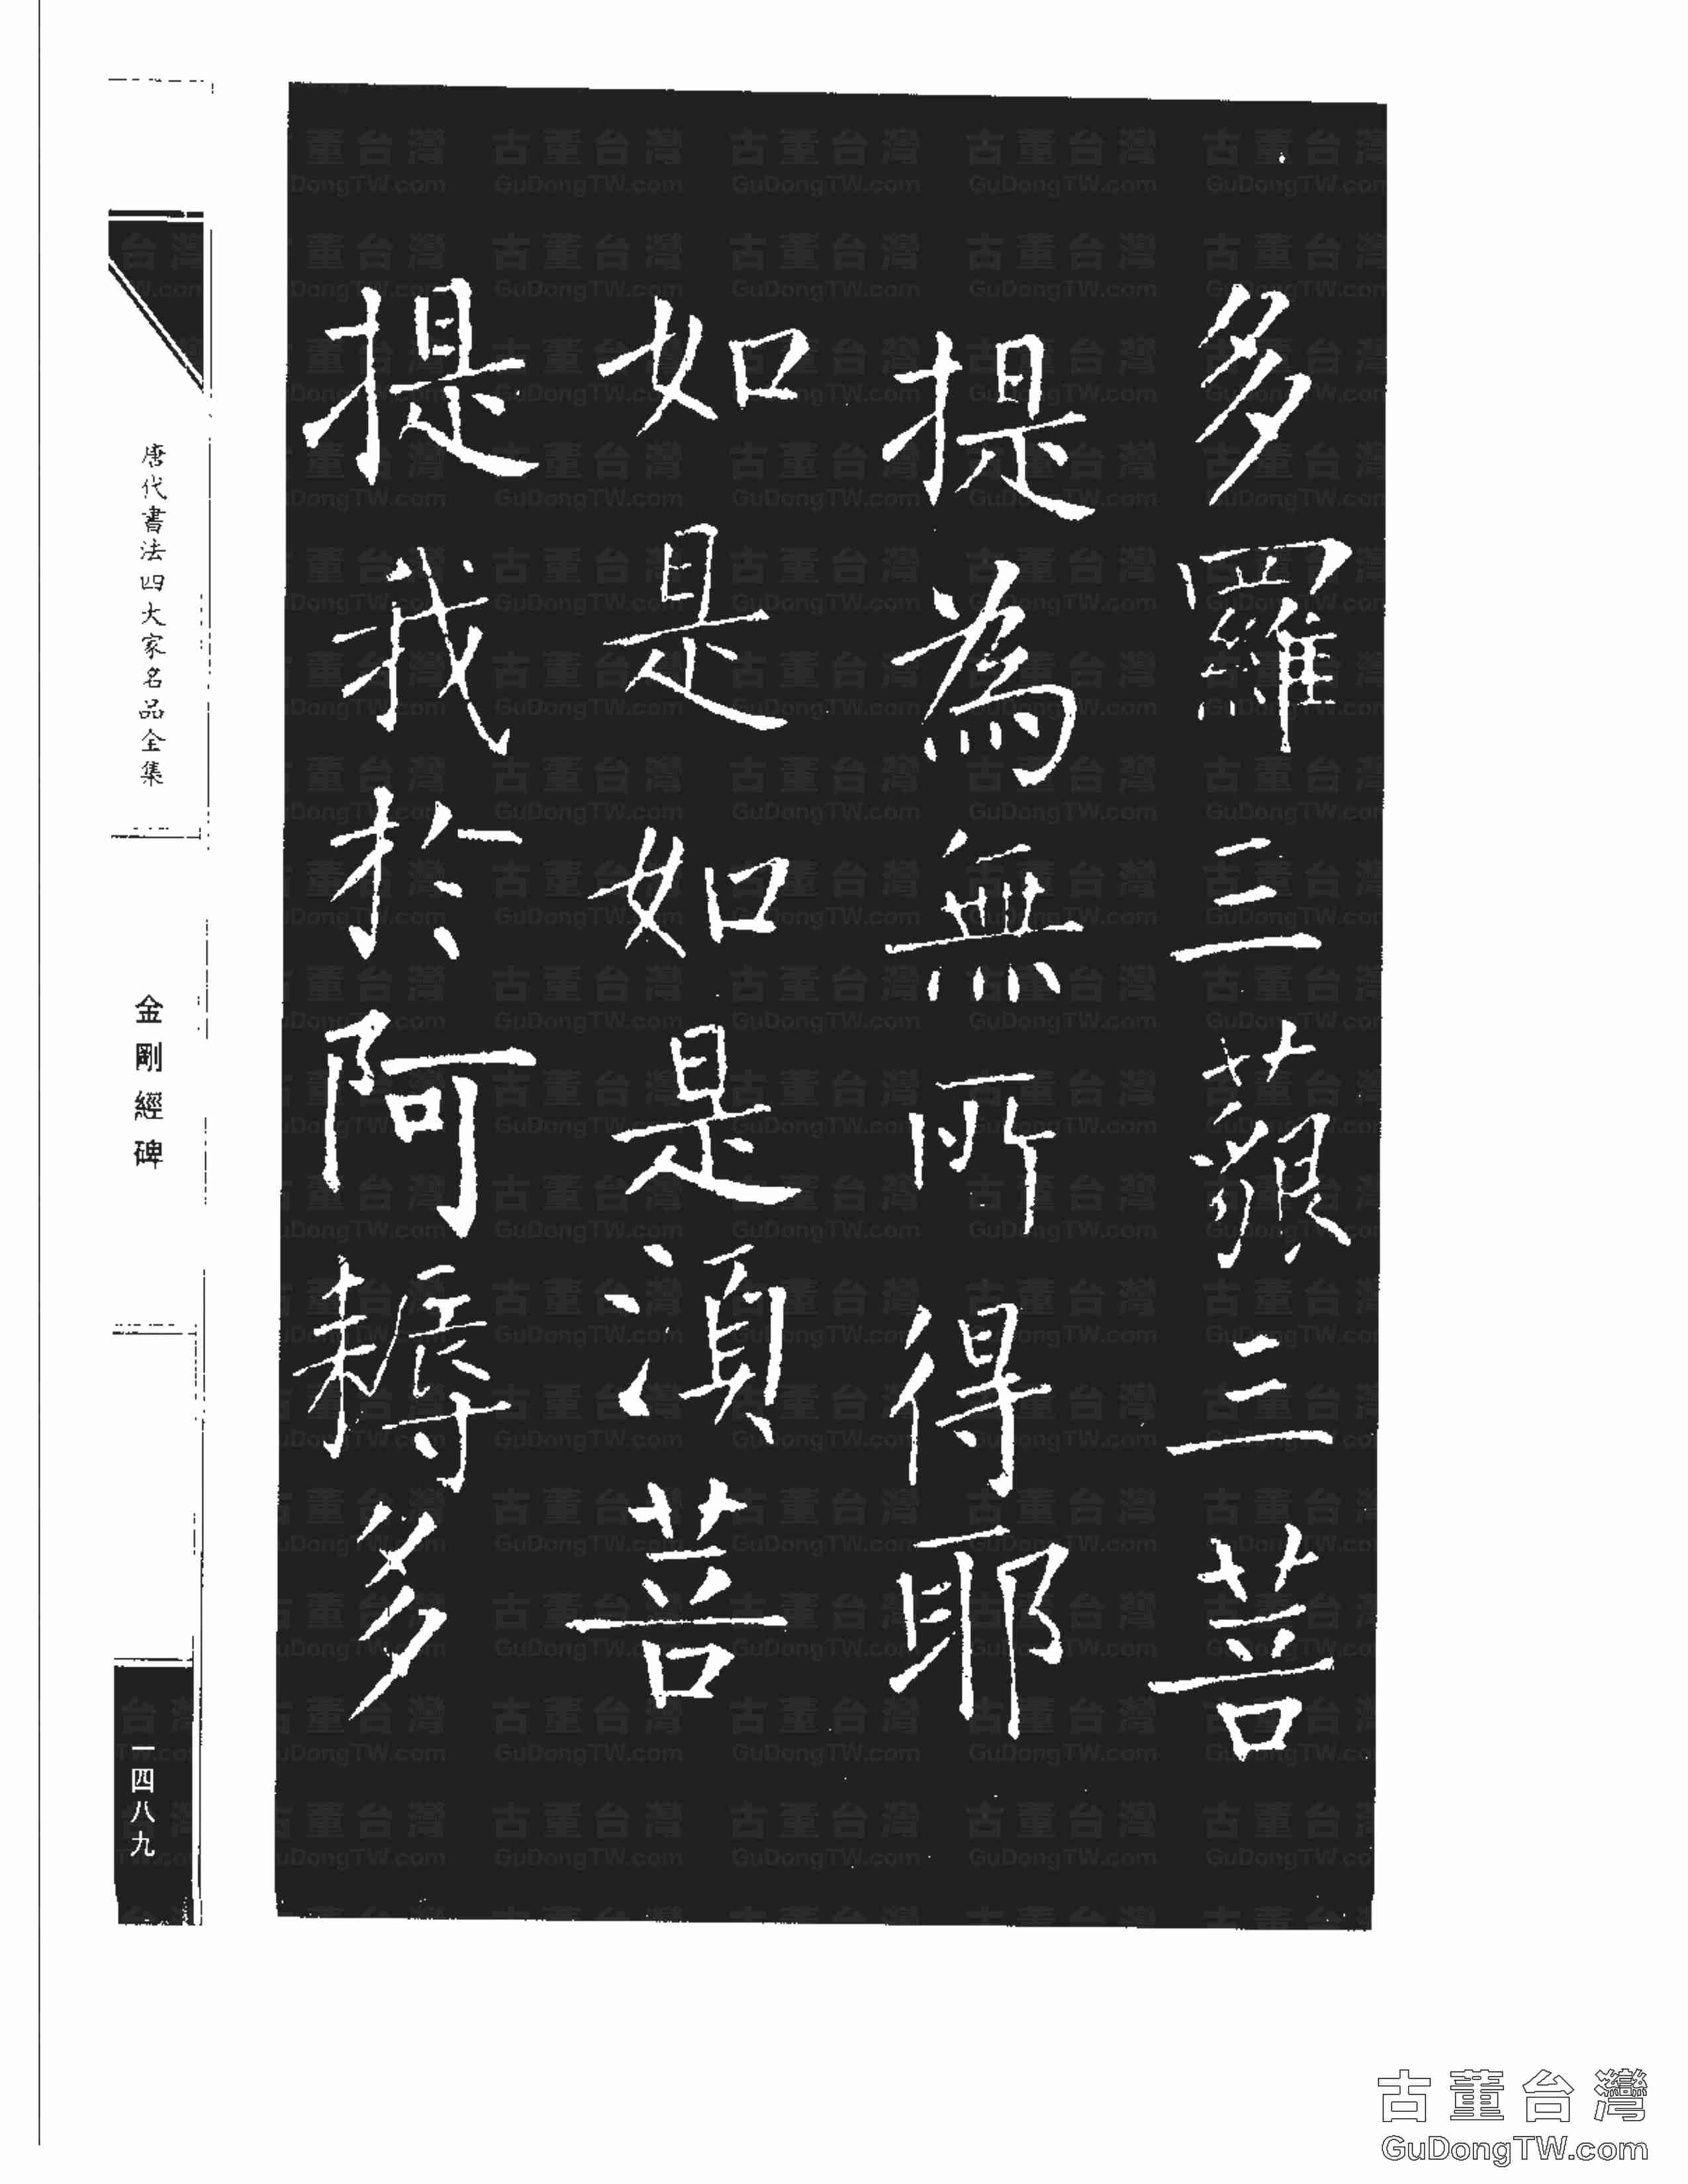 多羅三藐三菩
提為無所得耶
如是如是湏菩
提我於阿耨多
唐代書法四大家名品全集
金剛經碑
一四八九
古董台灣
GuDongTW.com